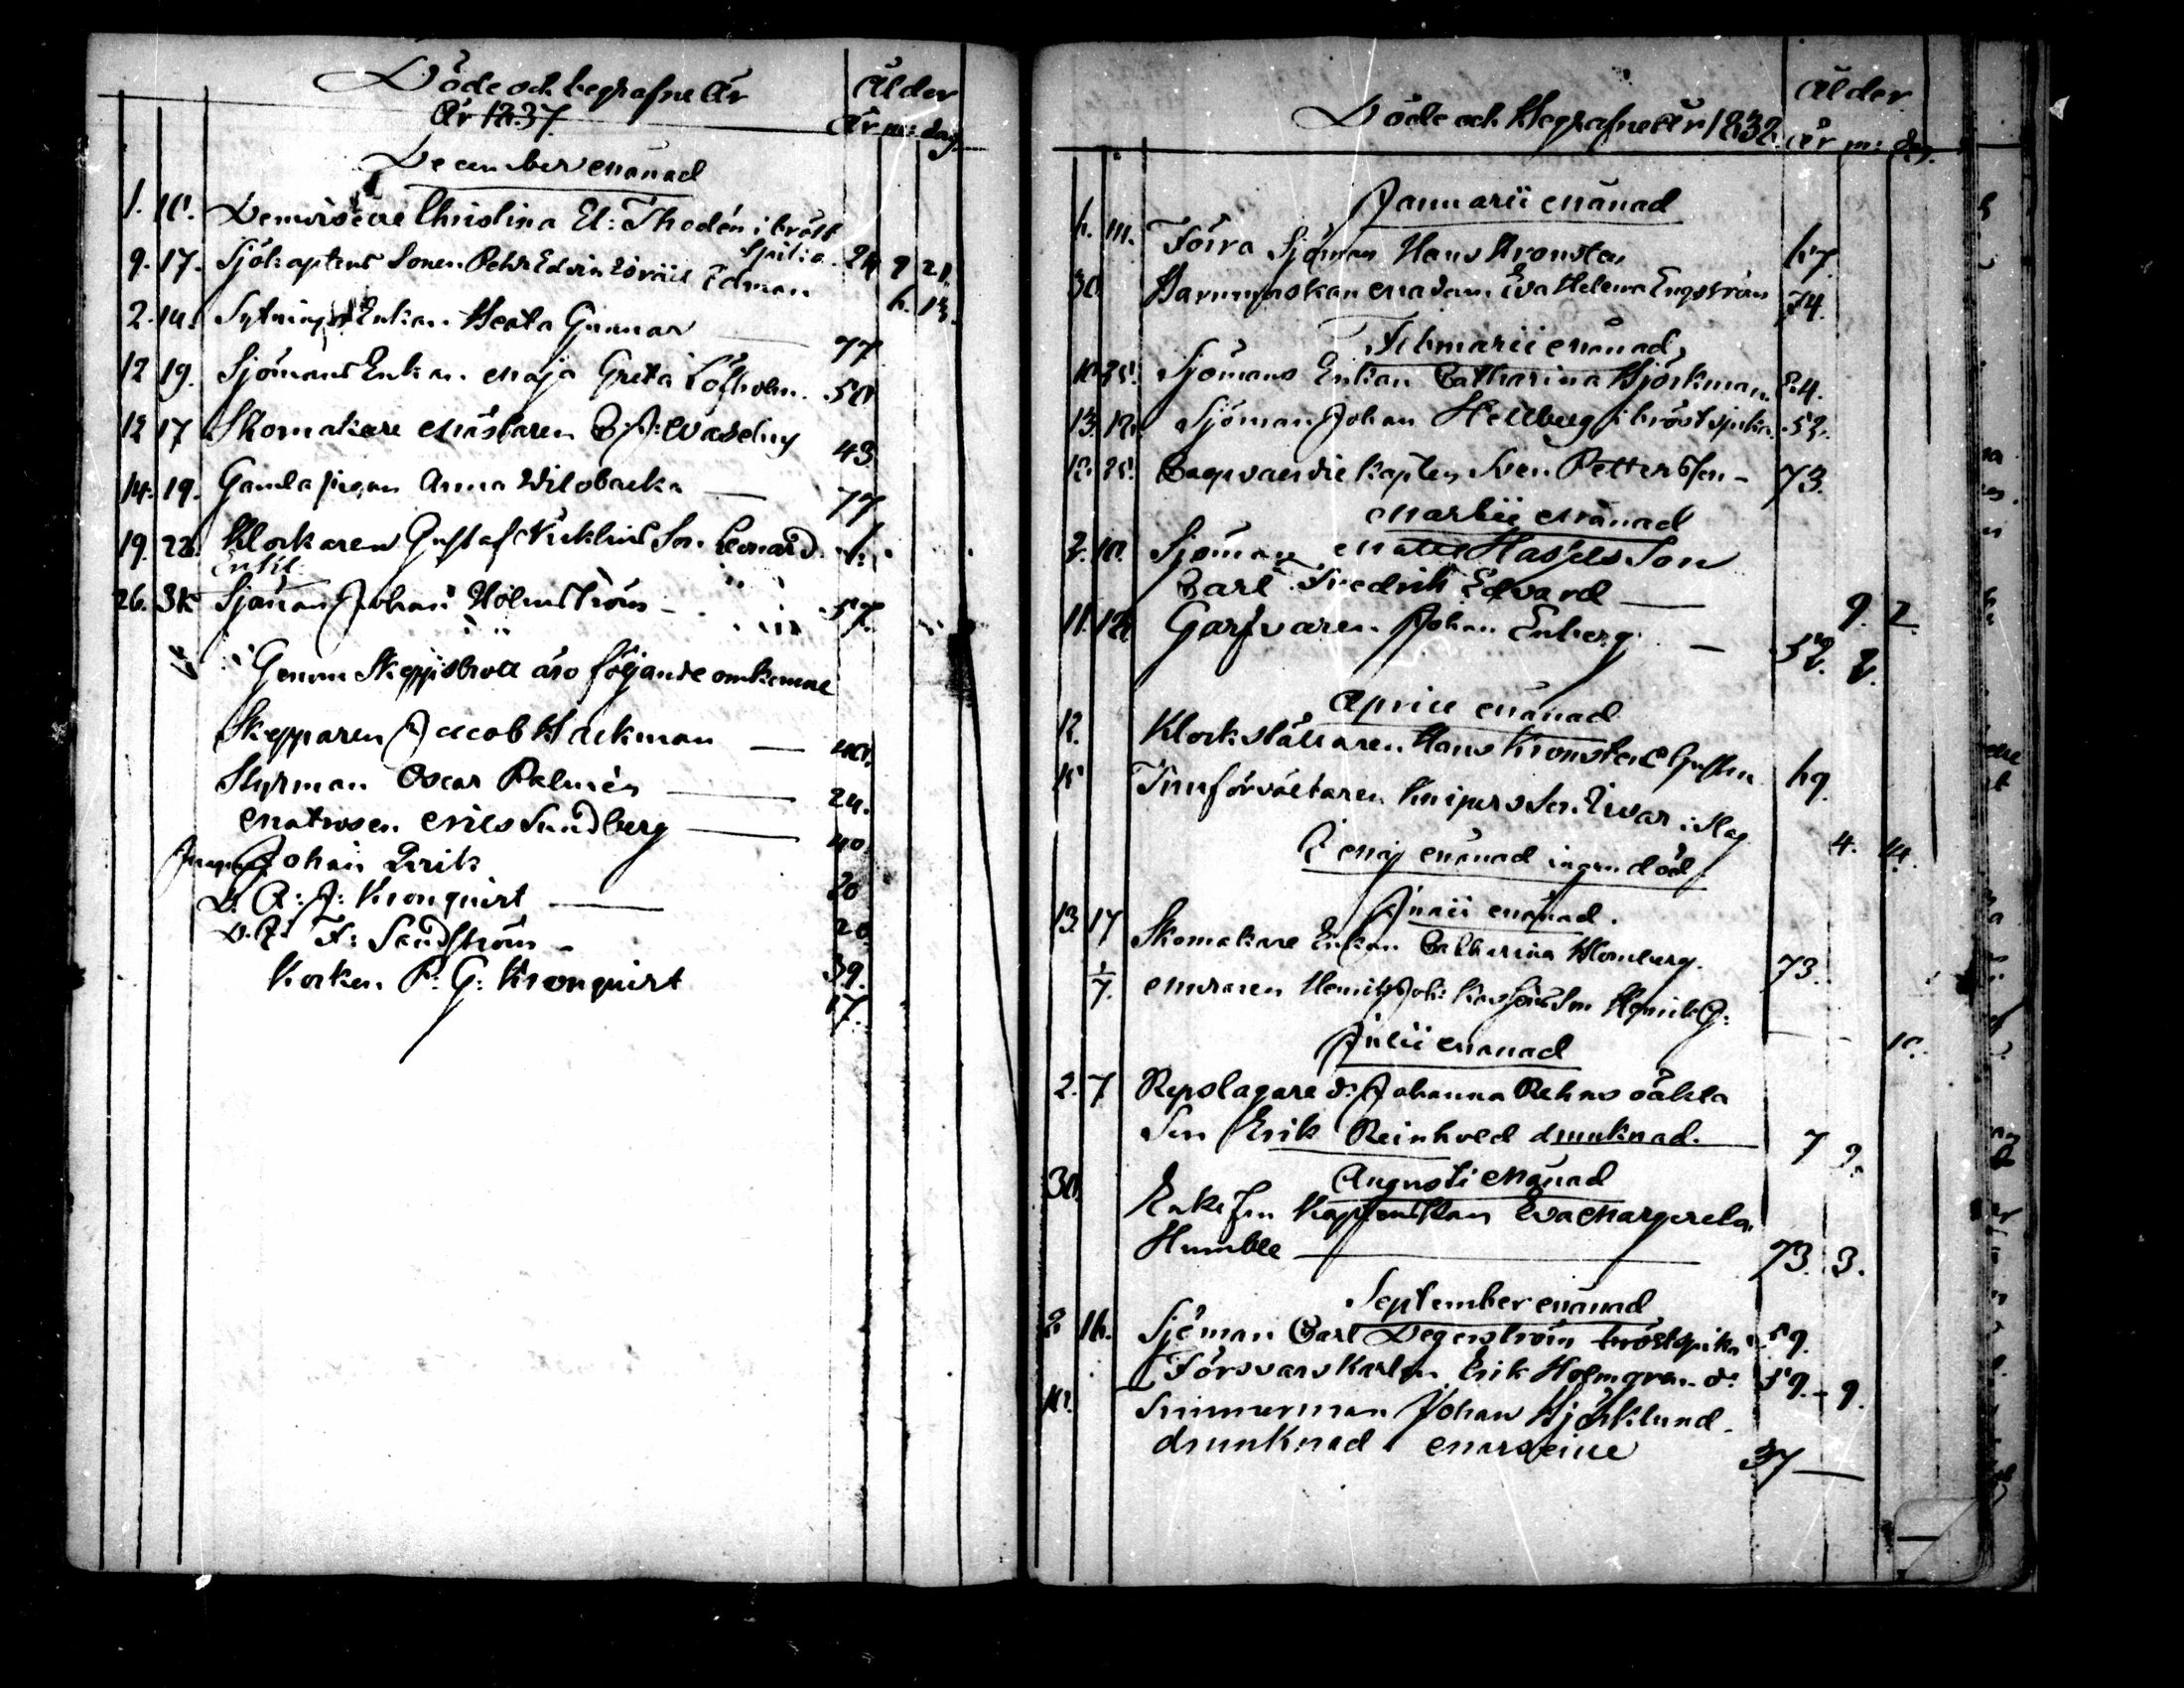 Döde och begrafne År
År 1837.
Ålder
År m: dag.
December Månad
1. 10. Demoiselle Christina El: Thodén i bröst
Spitia. 24 9 21.
9. 17. Sjökaptens Sonen Pehr Edvin Edman 6. 13.
2. 14. Sytnings Enkan Beata Gunnar — 77
12 19. Sjömans Enkan Maja Greta Löfholm. 50
12 17 Skomakare Mästaren 43
14. 19. Gamla pigan Anna — 77
19. 22. Klockaren Gustaf Nicklins Son Leonard
Enkl.
26. Sjöman Johan Holmström - 57.
Genom Skeppsbrott äro följande omkomne
Skepparen Jacob Backman — 40.
Styrman Oscar Palmén — 24.
Matrosen Nils Sundberg — 40.
Johan Erik 20
D. A: J: Kronquist — 20
D. F: Sandström - 39.
Kocken P: G: Kronquist 17.
Döde och Begrafne År 1838.
Ålder
År m: dag.
Januarii Månad
6. Förra Sjöman Hans Kronsten 67
30 Barnmorskan Madam Eva Helena Engström 74.
Februarii Månad
10 25. Sjömans Enkan Catharina Björkman 84.
13. 18. Sjöman Johan Hellberg i bröstspitia. 52.
18. 25. Kapten Sven Petterson - 73.
Martii Månad
2. 10. Sjöman Matts Hasfels Son
Carl Fredrik Edvard — 9. 2.
11. 18. Garfvaren Johan Enberg. — 52. 2.
April Månad
12. Klockställaren Hans Kronsten 69.
15 Son Ivar i Slag 4. 14.
I Maj Månad ingen död
Junii Månad.
13. 17 Skomakare Enkan Catharina Blomberg. 73.
1/7. Muraren Henrik Joh: Son Henrik G: 10.
Julii Månad
2. 7 Repslagare d: Johanna Rehns oäkta
Son Erik Reinhold drunknad. 7 2.
Augusti Månad
30. Enke Fru Kaptenskan Eva Margareta
Humble — 73. 3.
September Månad
2 16. Sjöman Carl Degerström bröstspitia 59.
Försvars Karlen Erik Holmgren d: 59. - 9.
10. Timmerman Johan Björklund.
drunknad i Marseille 37 —